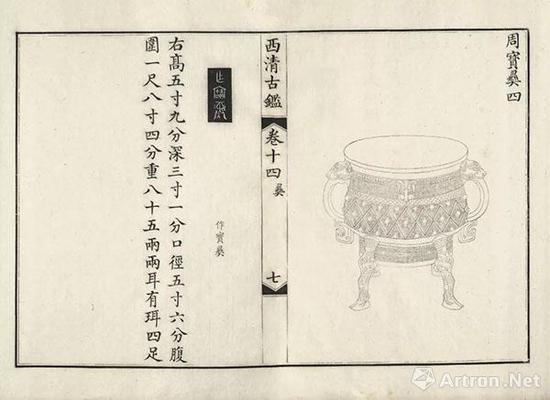 周寳彜四
西清古鑑
卷十四
彜
七
作寳彜
右高五寸九分深三寸一分口徑五寸六分腹
圍一尺八寸四分重八十五兩兩耳有珥四足
Artron.Net